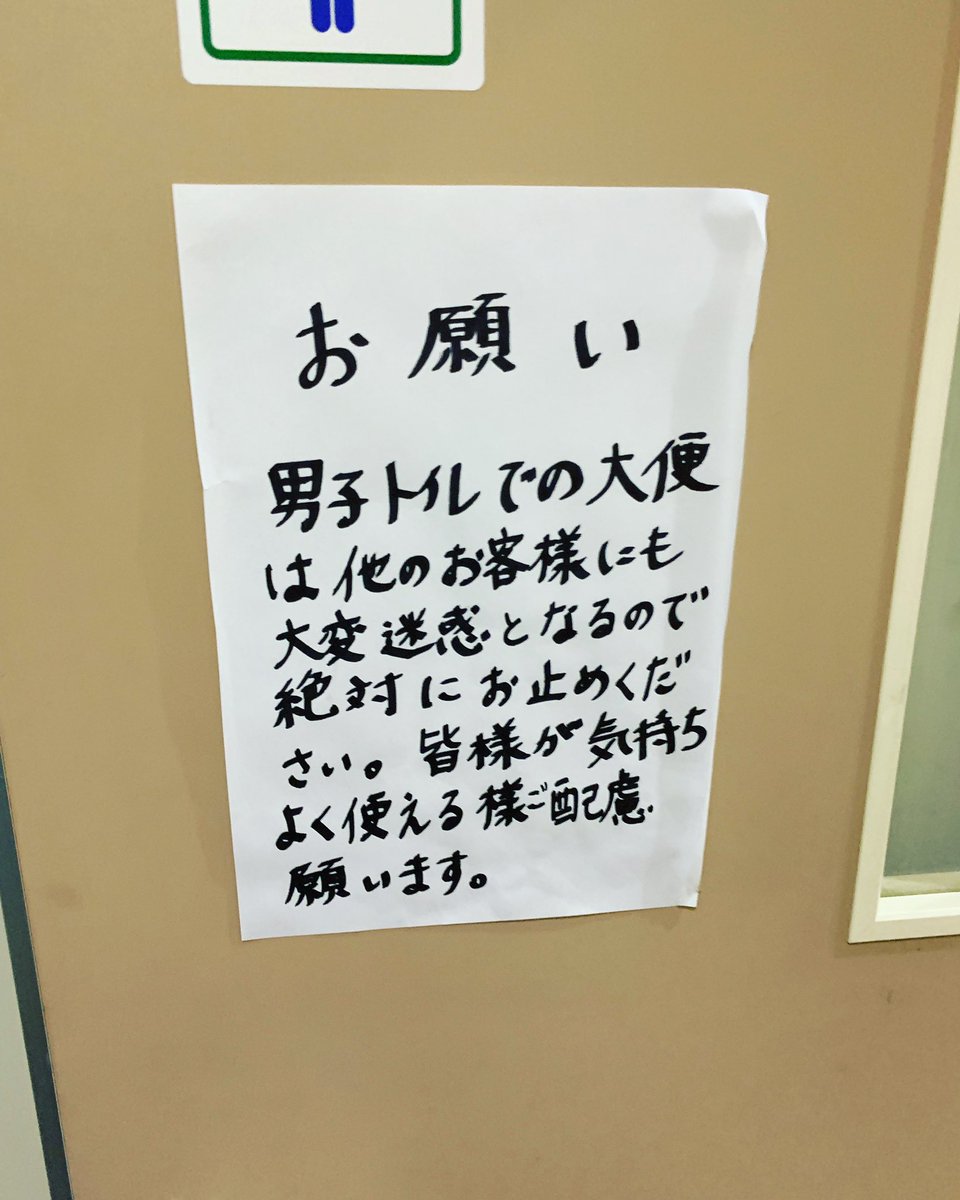 お願い
男子トイレでの大便
は他のお客様にも
大変迷惑となるので
絶対にお止めくだ
さい。皆様が気持ち
よく使える様ご配慮
願います。